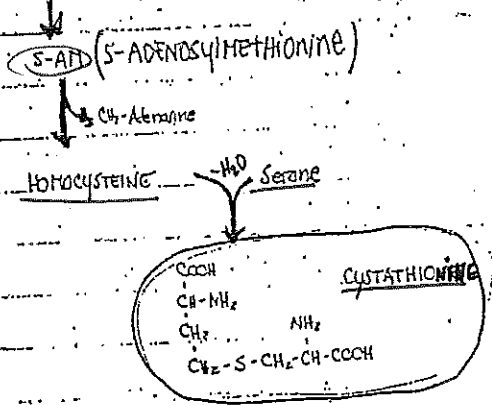 S-AM (S-ADENOSYLMETHIONINE)
CH3-Adenosine
HOMOCYSTEINE
-H2O
Serine
COOH
CYSTATHIONINE
CH-NH2
CH2
NH2
CH2-S-CH2-CH-COOH